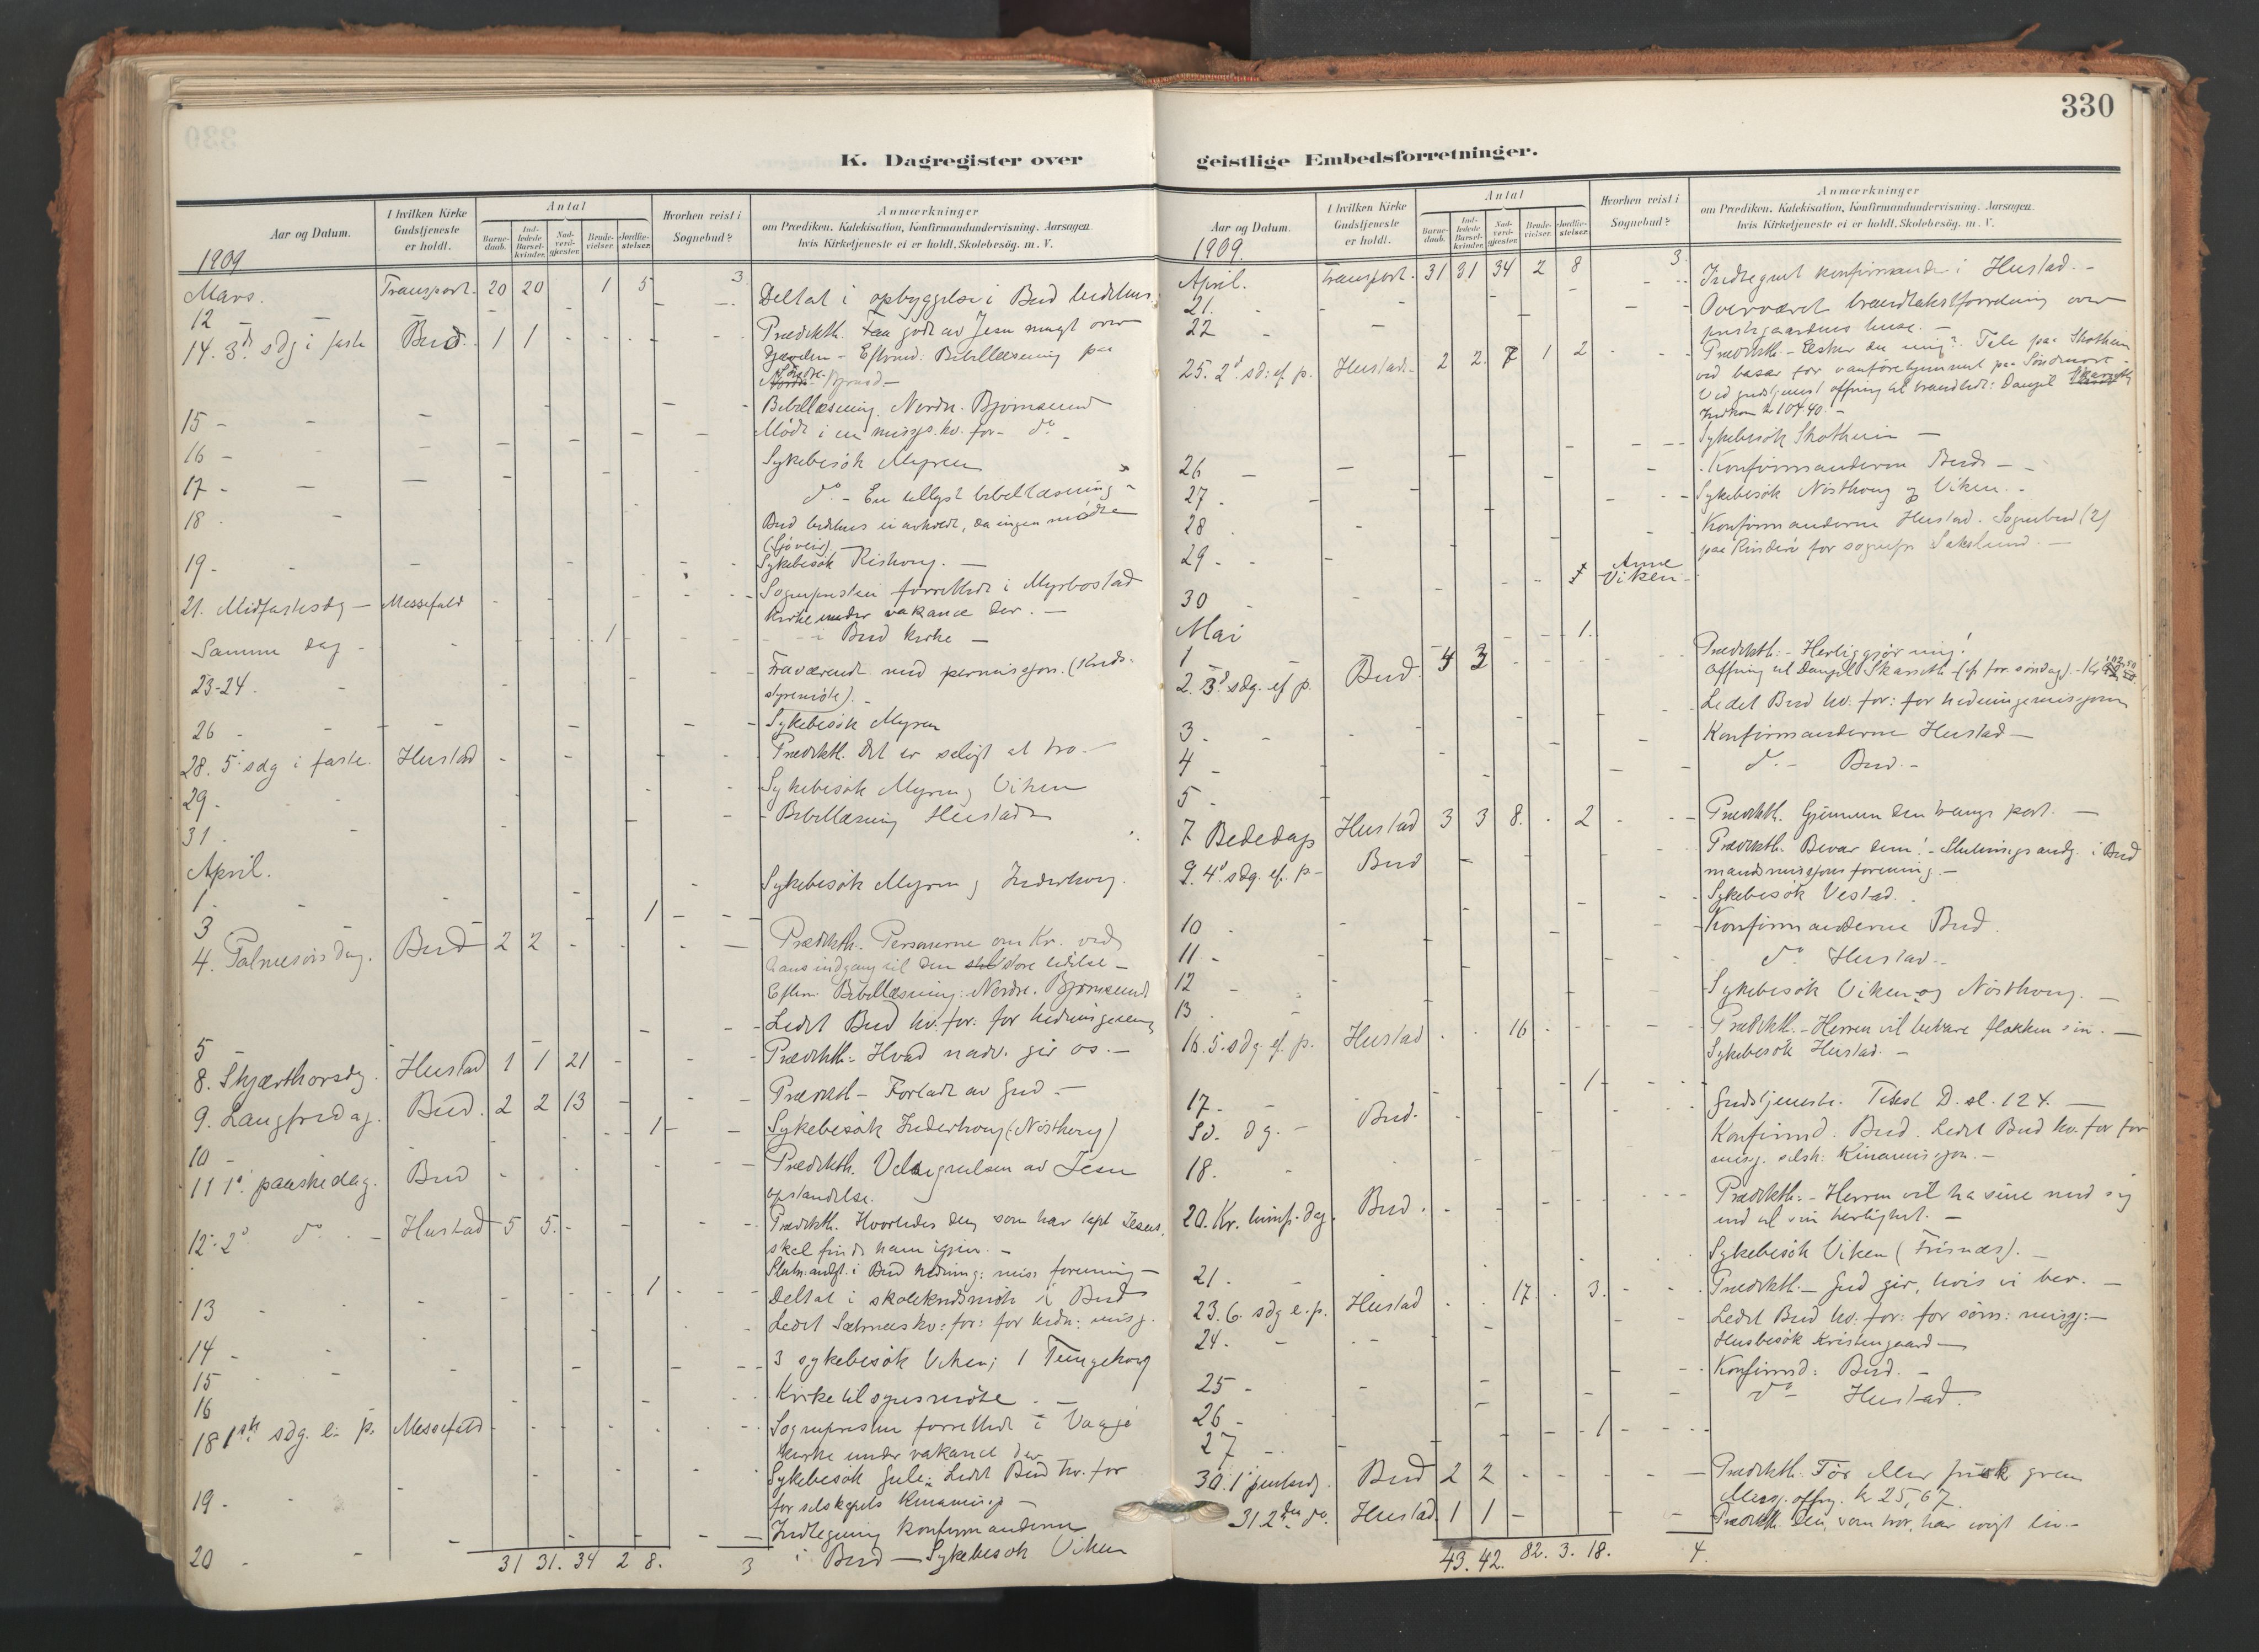 330
K. Dagregister over
geistlige Embedsforretninger.
Aar og Datum.
I hvilken Kirke Gudstjeneste er holdt.
Antal
Barnedaab.
Indledede Barselkvinder.
Nadverdgjæster.
Brudevielser.
Jordfæstelser.
Hvorhen reist i Sognebud?
Anmærkninger
om Prædiken, Katekisation, Konfirmandundervisning, Aarsagen
hvis Kirketjeneste ei er holdt, Skolebesøg. m. V.
1909
Mars. Transport. 20 20 1 5 3
12 - Deltat i opbyggelse i Bud bedehus.
14. 3d sdg i faste Bud. 1 1 Prædikth. Faa godt av Jesu magt over
djævelen - Eftermd: Bibellæsning paa
Søndre
15 - Bibellæsning Nordre Bjørnsund
16 - Møde i en missjs. kv. for - do -
17 - Sykebesøk Myren
18 - do - En utlyst bibellæsning -
Bud bedehus ei avholdt, da ingen mødte
(Sjøveir)
19 - Sykebesøk Rishoug. -
21. Midfastesdg - Messefald Sognepresten forrettede i Myrbostad
kirke under vakance der. -
Samme dag - 1 - i Bud kirke -
23-24. Fraværende med permissjon. (Kreds-
styremøte). -
26 - Sykebesøk Myren
28. 5. sdg i faste. Hustad Prædikth. Det er seligt at tro. -
29 - Sykebesøk Myren, Viken
31. Bibellæsning Hustad
April.
1. Sykebesøk Myren, Inderhoug.
3 1
4. Palmesøndag. Bud 2 2 Prædikth. Personerne om Kr. ved
hans indgang til den store lidelse -
Efterm. Bibellæsning: Nordre Bjørnsund
5 Ledet Bud kv. for. for hedningemis
8. Skjærthorsdg. Hustad 1 1 21 Prædikth. Hvad nadv. gir os. -
9. Langfredag. Bud. 2 2 13 Prædikth - Forladt av Gud -
10 - 1 Sykebesøk Inderhoug (Nøsthoug)
11 1ste paaskedag. Bud Prædikth. Velsignelsen av Jesu
opstandelse.
12. 2d do. - Hustad 5 5. Prædikth. Hvorledes den som har tapt Jesus,
skal finde ham igjen. -
Slutn.andgt. i Bud hedning: miss forening -
13 1 Deltat i skolekredsmøte i Bud
14 - Ledet Sætnes kv: for: for hedn: missj.
15 3 sykebesøk Viken; 1 Tungehoug
16 Kirketilsynsmøte -
18 1ste sdg. e. p. Messefald Sognepresten forrettede i Vaagø
kirke under vakance der
19 - Sykebesøk Gule: Ledet Bud kv. for
for selskapets Kinamissj -
20 - Indtegning konfirmanderne
i Bud - Sykebesøk Viken
31 31. 34 2 8. 3
Aar og Datum.
I hvilken Kirke Gudstjeneste er holdt.
Antal
Barnedaab.
Indledede Barselkvinder.
Nadverdgjæster.
Brudevielser.
Jordfæstelser.
Hvorhen reist i Sognebud?
Anmærkninger
om Prædiken, Katekisation, Konfirmandundervisning, Aarsagen
hvis Kirketjeneste ei er holdt, Skolebesøg. m. V.
1909.
April. Transport. 31 31 34 2 8 3.
21. - Indtegnet konfirmander i Hustad. -
22 - Overværet brandtakstforretning over
prestegaardens huse. -
25. 2d sd: ef p. Hustad. 2 2. 7 1 2 Prædikth. - Elsker du mig? Tale paa Skotheim
ved basar for vanførehjemmet paa Søndmør -
Ved gudstjenest offring til brandlidt: Danjel
Indkom kr 104.40. -
26 - Sykebesøk Skotheim -
27. Konfirmanderne Bud -
28 Sykebesøk Nøsthoug og Viken. -
29. Konfirmanderne Hustad. Sognebud (2)
paa Rindarø for sognepr Sakslund. -
30 1 Anne Viken -
Mai
1 1.
2. 3d sdg. ef p. Bud. 4 3 Prædikth: - Herliggjør mig!
Offring til Danjel Skarseth (ef for søndag). - Kr
3 - Ledet Bud kv: for: for hedningemissjonen
4 - Konfirmanderne Hustad -
5 - do. - Bud. -
7 Bededags Hustad 3 3 8. 2 Prædikth. Gjennem den trange port. -
9. 4d sdg. ef. p - Bud Prædikth. Bevar dem! - Slutningsandg. i Bud
mandsmissjonsforening. -
10 - Sykebesøk Vestad.
11 - Konfirmanderne Bud.
12 - do Hustad -
13 Sykebesøk Viken og Nøsthoug. -
16. 5. sdg ef. p. Hustad 16 Prædikth. - Herren vil bevare flokken sin. -
Sykebesøk Hustad. -
17. 1
Sd. dg. - Bud. Gudstjeneste. Tekst D. sl. 124. -
18. Konfirmd. Bud. Ledet Bud kv. for for
missj. selsk: Kinamissjon. -
20. Kr. himf. dag. Bud. Prædikth: - Herren vil ha sine med sig
ind til sin herlighet. -
21. - Sykebesøk Viken (Frisnæs). -
23. 6. sdg e. p. Hustad 17. 3. Prædikth. - Gud gir, hvis vi ber. -
24. - Ledet Bud kv: for: for sjøm: missj: -
Husbesøk Kristengaard -
25 - Konfirmd: Bud. -
26 - do Hustad.
27 1
30. 1 pinsedg. Bud 2 2 Prædikth. Tør eller frisk gren
Missj. offrg. kr 25,67.
31 2den do. Hustad. 1 1 - Prædikth. Den, som tror, har evigt liv. -
43. 42. 82. 3. 18. 4.